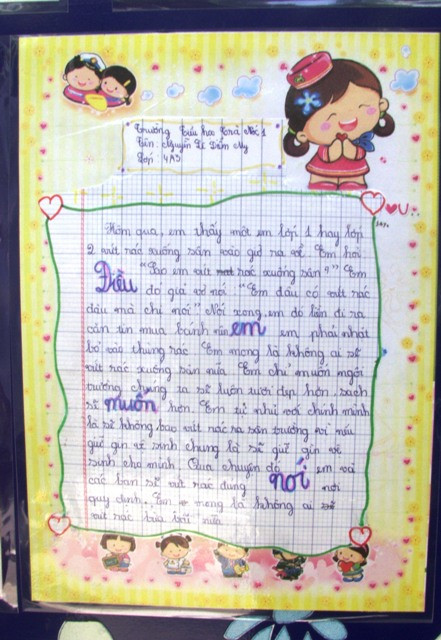 Trường Tiểu học Trà Nóc 1
Tên: Nguyễn Lê Diễm My
Lớp: 4A3
U..
Hôm qua, em thấy một em lớp 1 hay lớp
2 vứt rác xuống sân vào giờ ra về. Em hỏi
"Sao em vứt rác xuống sân?" Em
Điều
đó giả vờ nói "Em đâu có vứt rác
đâu mà chị nói" Nói xong, em đó lẩn đi ra
căn tin mua bánh em em phải nhặt
bỏ vào thùng rác. Em mong là không ai sẽ
vứt rác xuống sân nữa. Em chỉ muốn ngôi
trường chúng ta sẽ luôn tươi đẹp hơn, sạch
sẽ muốn hơn. Em tự nhủ với chính mình
là sẽ không bao vứt rác ra sân trường vì nếu
giữ gìn vệ sinh chung là sẽ giữ gìn vệ
sinh cho mình. Qua chuyện đó, nói em và
các bạn sẽ vứt rác đúng nơi
quy định. Em mong là không ai sẽ
vứt rác bừa bãi nữa.